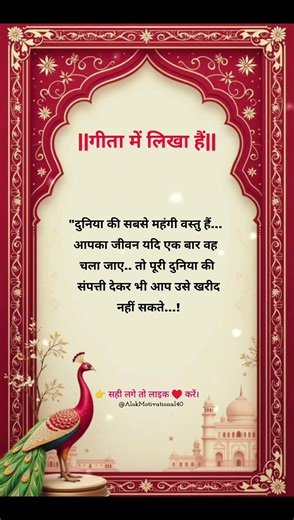 ||गीता में लिखा हैं||
"दुनिया की सबसे महंगी वस्तु हैं...
आपका जीवन यदि एक बार वह
चला जाए.. तो पूरी दुनिया की
संपत्ती देकर भी आप उसे खरीद
नहीं सकते...!
👉 सही लगे तो लाइक ❤️ करें।
@AlokMotivational40